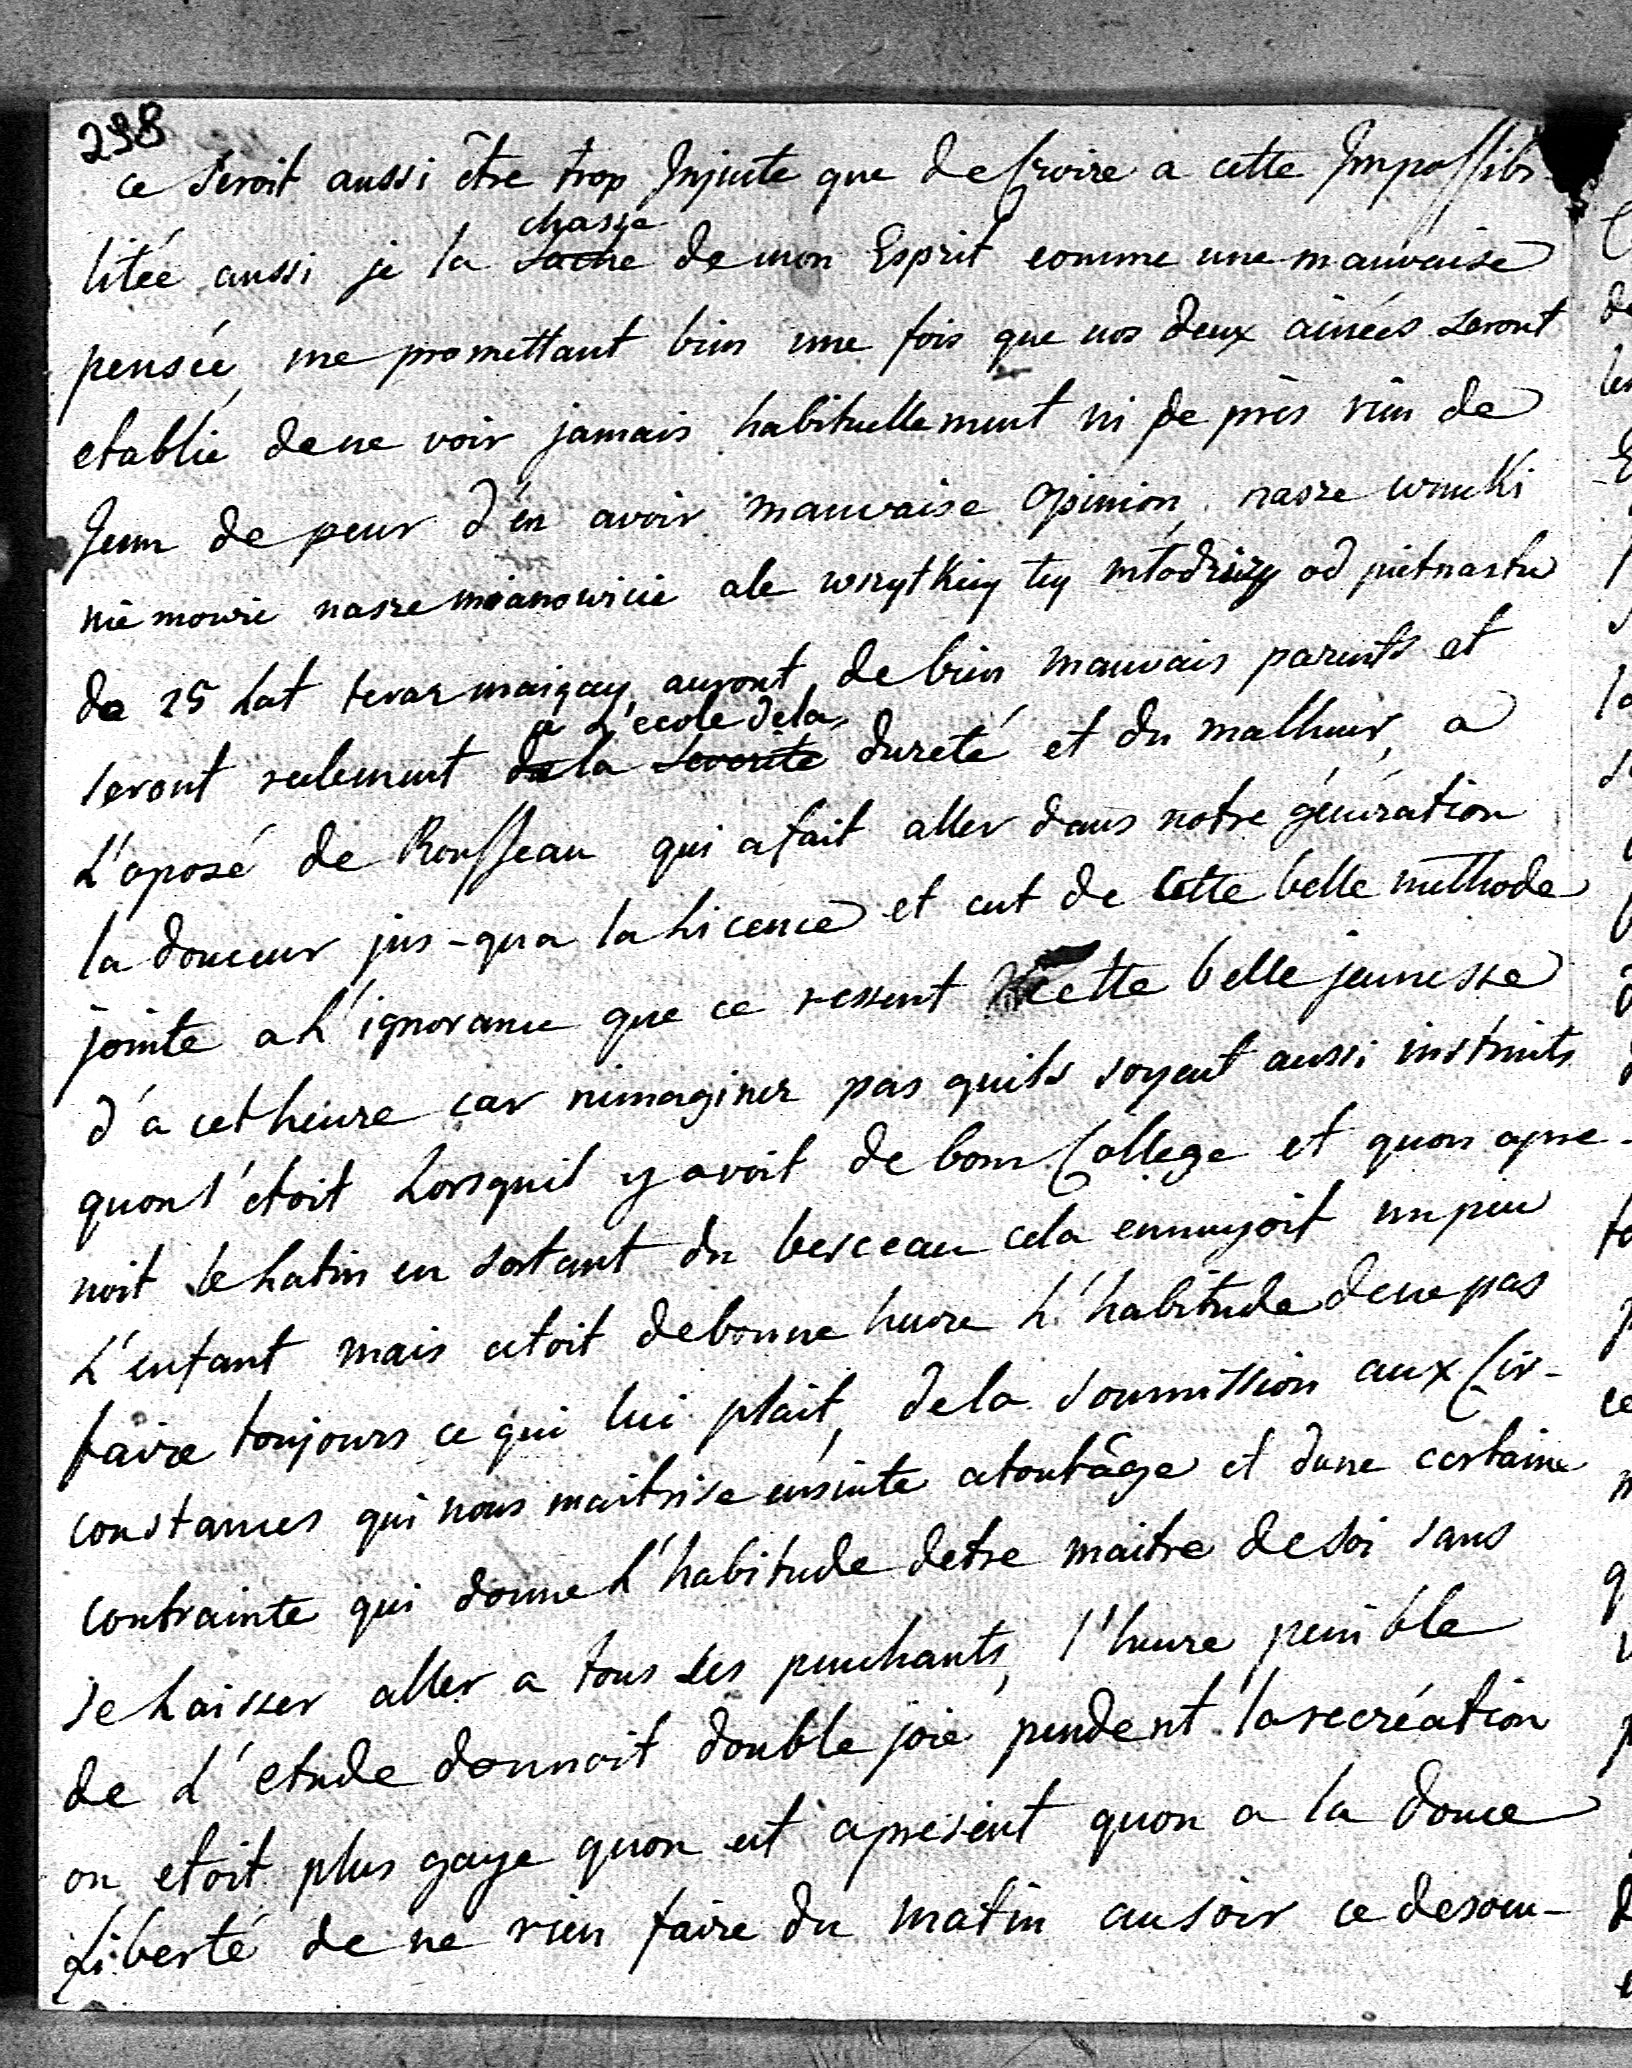 298
ce seroit aussi être trop Injuste que de Croire a cette Impossibi-
litée aussi je la chasse de mon Esprit comme une mauvaise
pensée, me promettant bien une fois que nos deux ainées seront
etablié de ne voir jamais habituellement ni de près rien de
Jeun de peur d'én avoir mauvaise Opinion, nasze wnuki
nie mowie nasze mianowicie ale wszytkiey tey młodziezy od pietnastu
do 25 Lat teraz maiącey auront de bien mauvais parents et
a L'ecole de la
seront seulement de la severité dureté et du malheur, a
L'oposé de Rousseau qui a fait aller dans notre géneration
la douceur jus-qua la Licence et cest de Cette belle methode
jointe a L'ignorance que ce ressent cette belle jeunesse
d'a cetheure car nimaginez pas quils soyent aussi instruits
quon l'étoit Lorsquil y avoit de bons College et quon apre-
noit le Latin en sortant du berceau cela ennuyoit un peu
L'enfant mais cetoit debonne heure L'habitude de ne pas
faire toujours ce qui lui plait, de la soumission aux Cir-
constances qui nous maitrise ensuite atoutâge et dune certaine
contrainte qui donne L'habitude detre maitre de soi sans
se Laisser aller a tous ses penchants, l'heure penible
de L'etude donnoit double joie pendent la recréation
on etoit plus gaye quon est apresent quon a la douce
Liberté de ne rien faire du matin au soir ce desoeu-